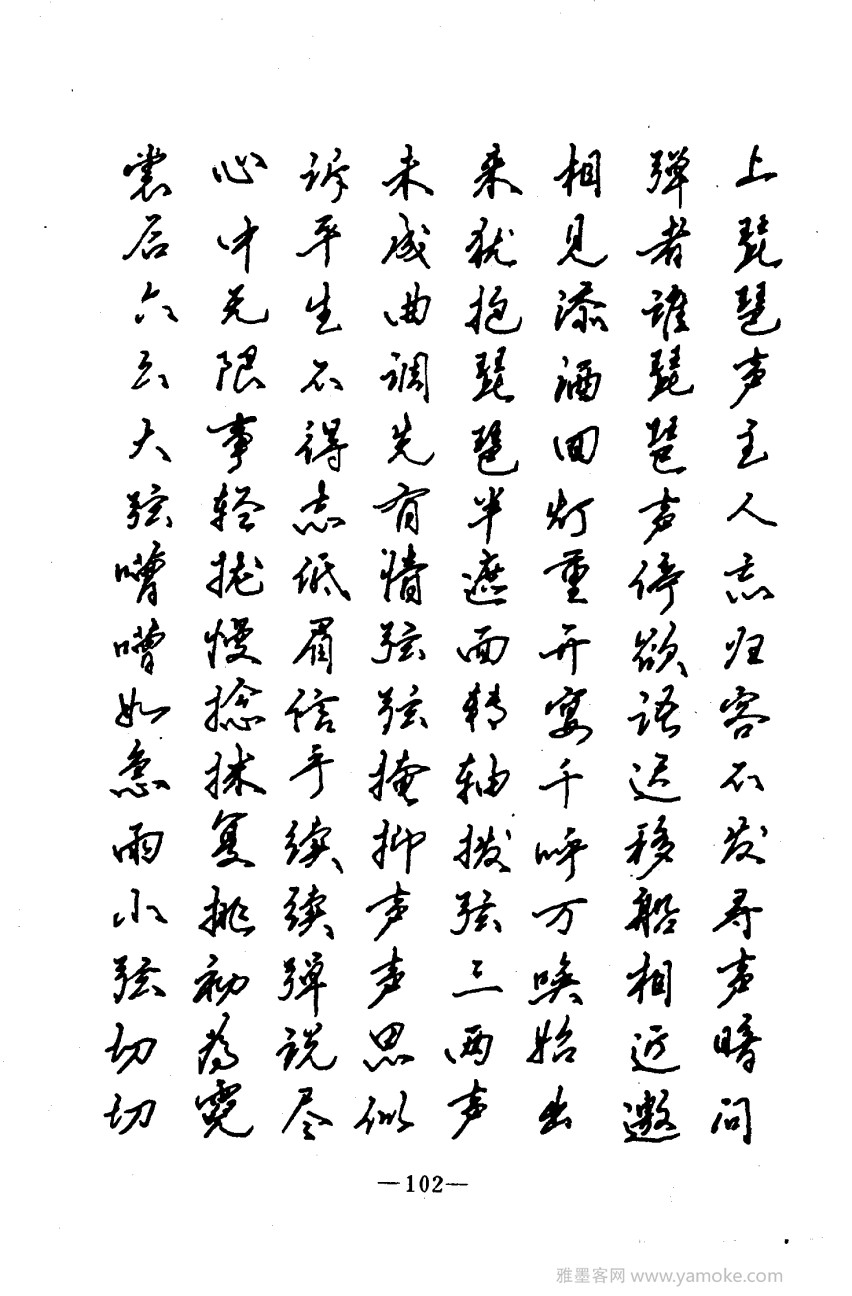 上琵琶声主人忘归客不发寻声暗问
弹者谁琵琶声停欲语迟移船相近邀
相见添酒回灯重开宴千呼万唤始出
来犹抱琵琶半遮面转轴拨弦三两声
未成曲调先有情弦弦掩抑声声思似
诉平生不得志低眉信手续续弹说尽
心中无限事轻拢慢捻抹复挑初为霓
裳后六幺大弦嘈嘈如急雨小弦切切
—102—
雅墨客网 www.yamoke.com